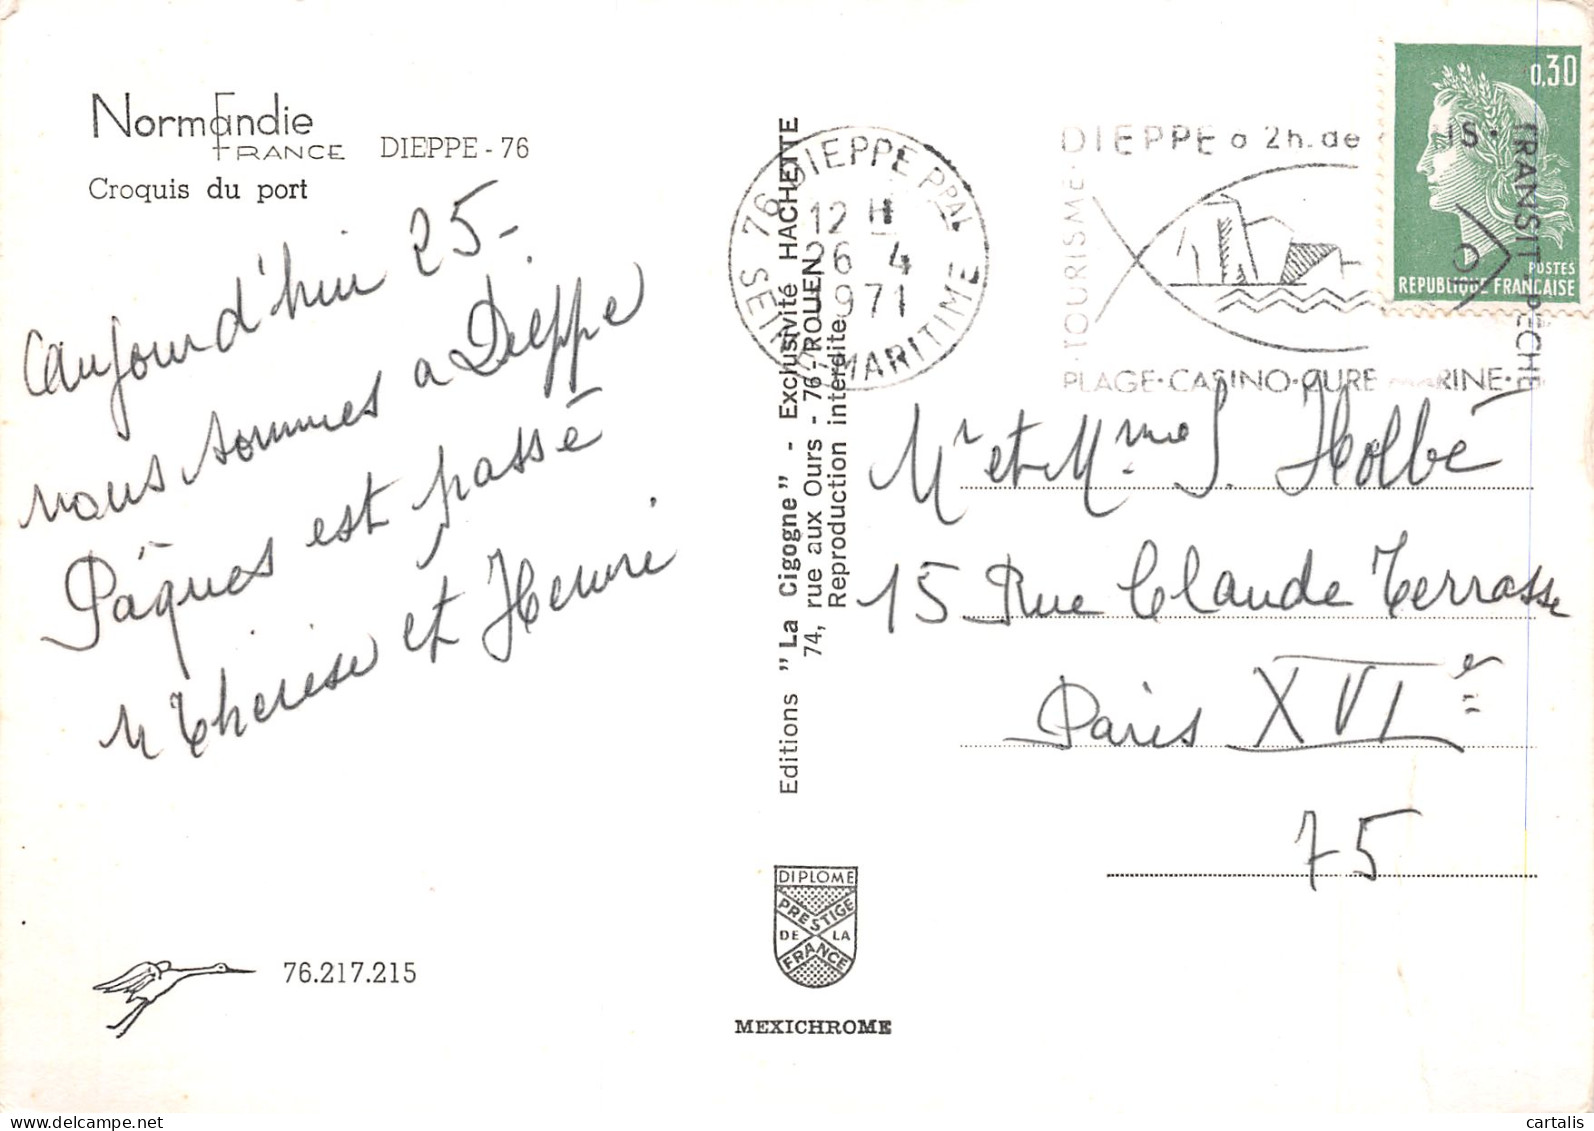 Normandie
FRANCE DIEPPE - 76
Croquis du port
aujourd'hui 25-
nous sommes a Dieppe
Pâques est passé
M Therese et Henri
76.217.215
Editions "La Cigogne" - Exclusivité HACHETTE
74, rue aux Ours - 76 - ROUEN
Reproduction interdite
DIPLOME
PRESTIGE
DE LA
FRANCE
MEXICHROME
76 DIEPPE PPAL
12 H
26 4
1971
SEINE MARITIME
DIEPPE a 2h. de PARIS.
TRANSIT-PECHE
TOURISME.
PLAGE.CASINO.CURE MARINE.
0,30
POSTES
REPUBLIQUE FRANCAISE
Mr et Mme S. Holbé
15 Rue Claude Terrasse
Paris XVIe
75
cartalis
www.delcampe.net